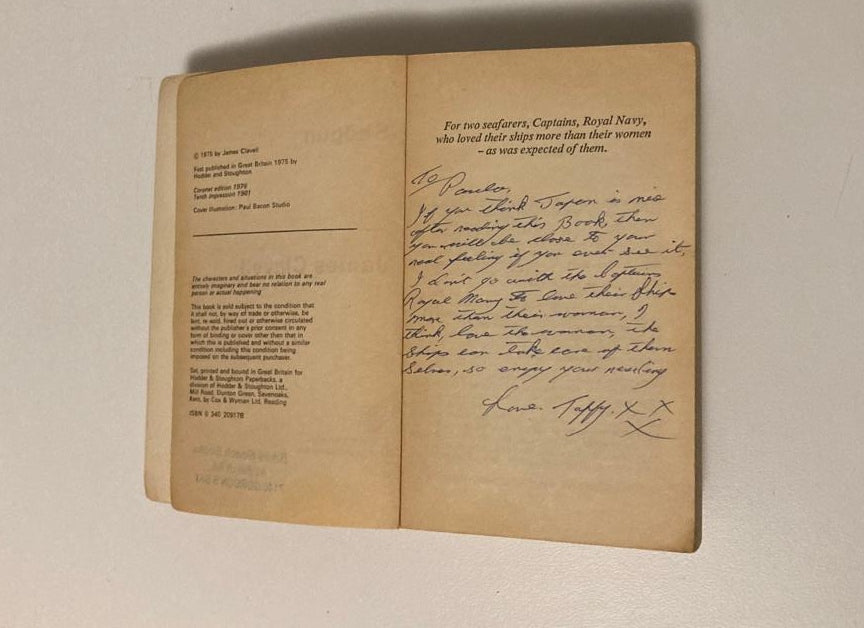 © 1975 by James Clavell
First published in Great Britain 1975 by
Hodder and Stoughton
Coronet edition 1976
Tenth impression 1981
Cover illustration: Paul Bacon Studio
The characters and situations in this book are
entirely imaginary and bear no relation to any real
person or actual happening
This book is sold subject to the condition that
it shall not, by way of trade or otherwise, be
lent, re-sold, hired out or otherwise circulated
without the publisher's prior consent in any
form of binding or cover other than that in
which this is published and without a similar
condition including this condition being
imposed on the subsequent purchaser.
Set, printed and bound in Great Britain for
Hodder & Stoughton Paperbacks, a
division of Hodder & Stoughton Ltd.,
Mill Road, Dunton Green, Sevenoaks,
Kent, by Cox & Wyman Ltd, Reading
ISBN 0 340 209178
For two seafarers, Captains, Royal Navy,
who loved their ships more than their women
– as was expected of them.
To
If you think Japan is nice
after reading this Book, then
you will be close to your
real feeling if you ever see it,
I don't go with the Captains
Royal Navy to love their ships
more than their woman, I
think, love the woman, the
ships can take care of them
selves, so enjoy your reading
Love. Taffy. X X
X